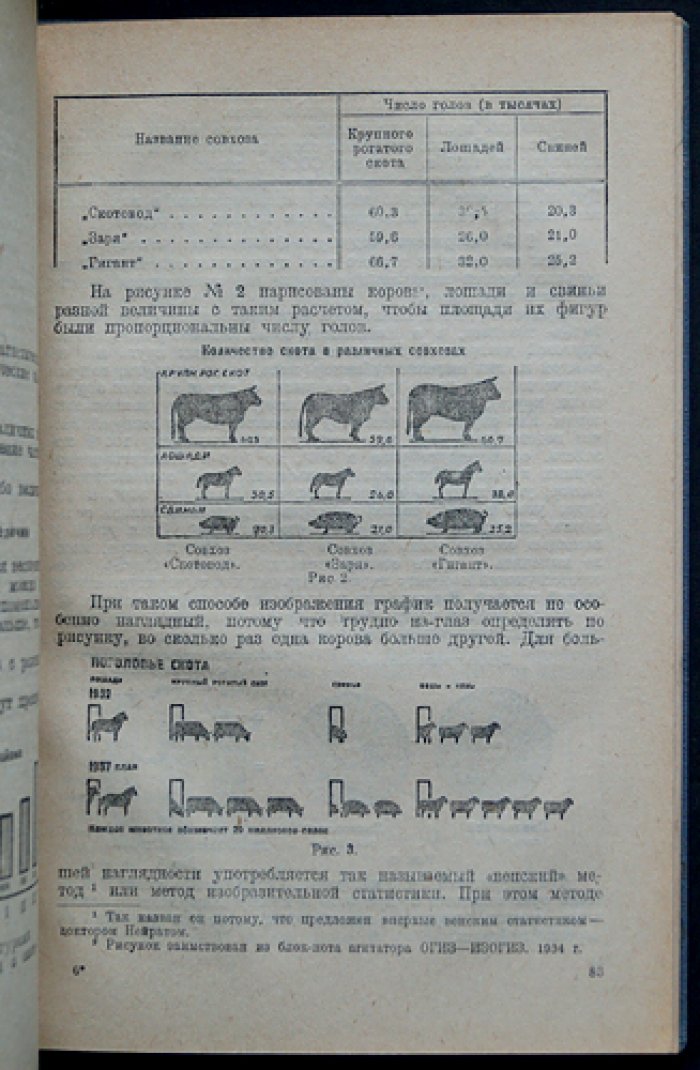 Число голов (в тысячах)
Название совхоза
Крупного рогатого скота
Лошадей
Свиней
„Скотовод“ . . . . . . . . . . . . . 60,3 20,3
„Заря“ . . . . . . . . . . . . . . . 59,6 26,0 21,0
„Гигант“ . . . . . . . . . . . . . . 66,7 32,0 25,2
На рисунке № 2 нарисованы коровы, лошади и свиньи
разной величины с таким расчетом, чтобы площади их фигур
были пропорциональны числу голов.
Количество скота в различных совхозах
КРУПН. РОГ. СКОТ
ЛОШАДИ
30,5 26,0
СВИНЬИ
21,0 25,2
Совхоз Совхоз Совхоз
«Скотовод». «Заря». «Гигант».
Рис 2.
При таком способе изображения график получается не осо-
бенно наглядный, потому что трудно на-глаз определить по
рисунку, во сколько раз одна корова больше другой. Для боль-
ПОГОЛОВЬЕ СКОТА
ЛОШАДИ КРУПНЫЙ РОГАТЫЙ СКОТ СВИНЬИ ОВЦЫ И КОЗЫ
1932
1937 ПЛАН
Каждое животное обозначает 20 миллионов голов
Рис. 3.
шей наглядности употребляется так называемый «венский» ме-
тод ¹ или метод изобразительной статистики. При этом методе
¹ Так назван он потому, что предложен впервые венским статистиком —
доктором Нейратом.
Рисунок заимствован из блок-нота агитатора ОГИЗ—ИЗОГИЗ. 1934 г.
6* 83